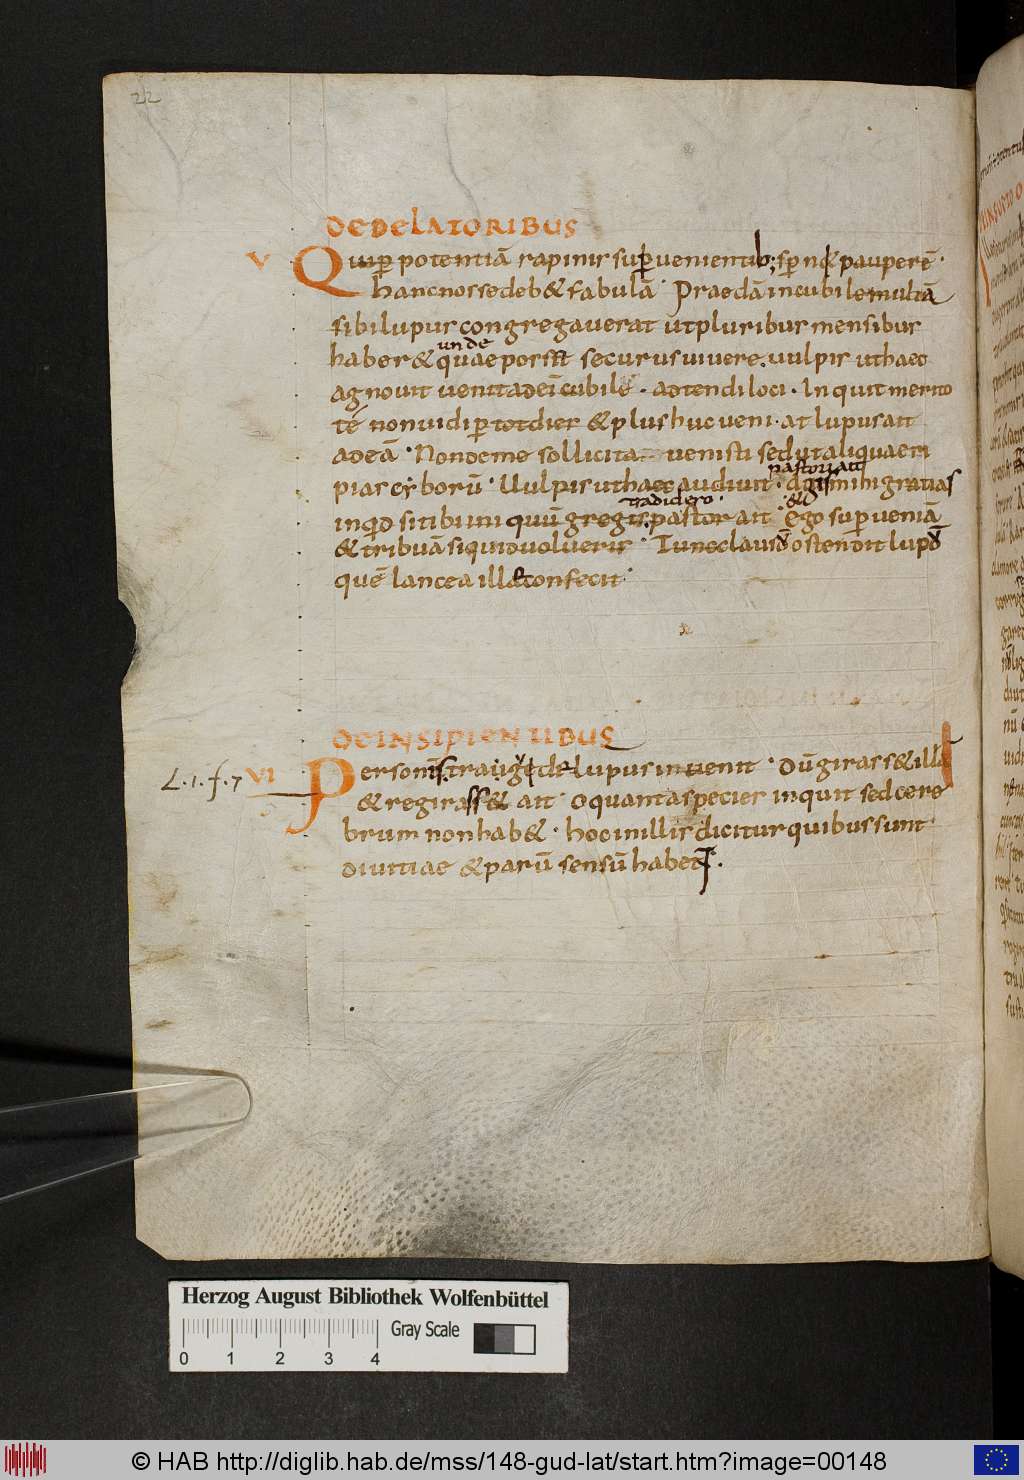 22
DE DELATORIBUS
V Quip potentiā rapinis supvenientib; spn& pauperē ·
hanc nosse deb& fabulā · Praedā in cubile multā
sibi lupus congregaverat ut pluribus mensibus
unde
haber& quae possit securus vivere. vulpis ut haec
agnovit venit ad ei cubile · adtendi loci · Inquit merito
té non vidi p tot dies & plus huc veni · at lupus ait
ad eā · Non de me sollicita venisti sed ut aliqua eri
pias cyborū · Vulpis ut haec audivit ·
pastori ait
mihi gratias
tradidero ·
inqd si tibi quū gregis pastor ait · Ego supveniā
& tribuā si quid volueris · Tunc clausū ostendit lupū
quē lancea illa confecit ·
DE INSIPIENTIBUS
L · 1 · f · 7
VI Personā lupus invenit · Dū girass& illā
& regirass& ait · O quanta species inquit sed cere
brum non hab& · hoc in illis dicitur quibus sunt
divitiae & parū sensū habent.
Herzog August Bibliothek Wolfenbüttel
Gray Scale
0 1 2 3 4
© HAB http://diglib.hab.de/mss/148-gud-lat/start.htm?image=00148